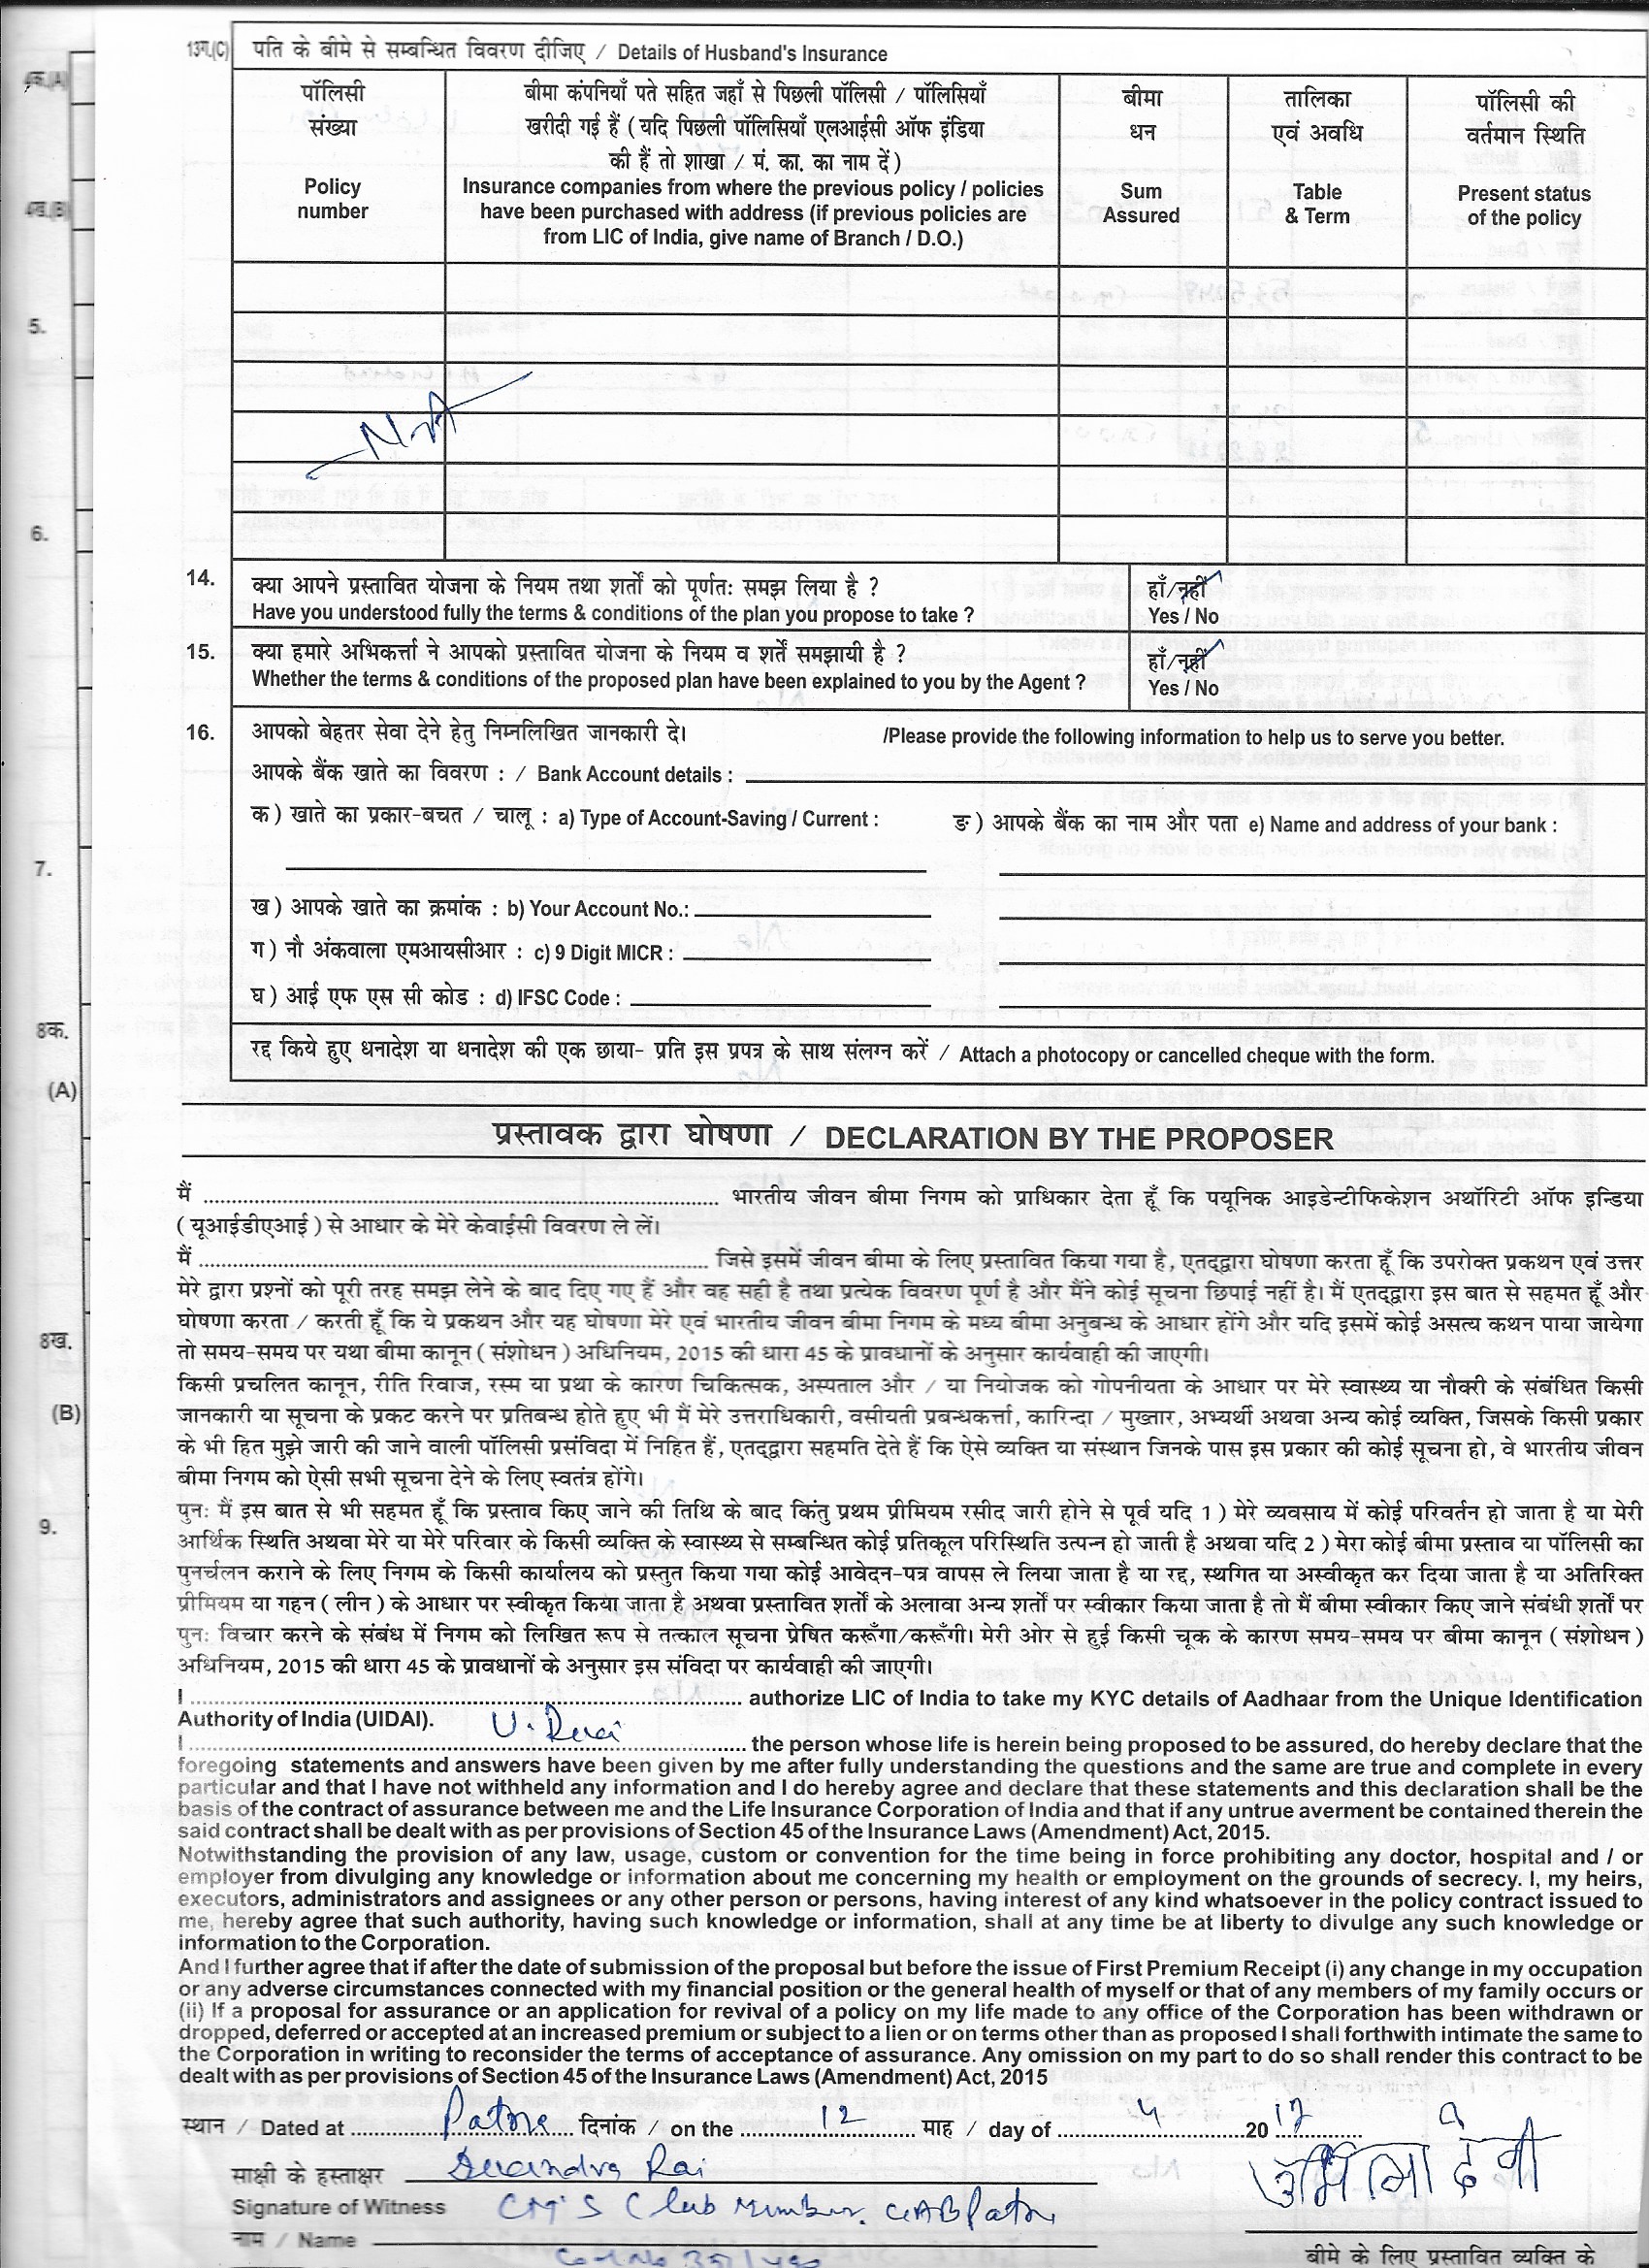 13ग.(C) पति के बीमे से सम्बन्धित विवरण दीजिए / Details of Husband's Insurance
पॉलिसी संख्या Policy number
बीमा कंपनियाँ पते सहित जहाँ से पिछली पॉलिसी / पॉलिसियाँ
खरीदी गई हैं ( यदि पिछली पॉलिसियाँ एलआईसी ऑफ इंडिया
की हैं तो शाखा / मं. का. का नाम दें )
Insurance companies from where the previous policy / policies
have been purchased with address (if previous policies are
from LIC of India, give name of Branch / D.O.)
बीमा धन Sum Assured
तालिका एवं अवधि Table & Term
पॉलिसी की वर्तमान स्थिति Present status of the policy
14. क्या आपने प्रस्तावित योजना के नियम तथा शर्तों को पूर्णतः समझ लिया है ? हाँ/नहीं
Have you understood fully the terms & conditions of the plan you propose to take ? Yes / No
15. क्या हमारे अभिकर्त्ता ने आपको प्रस्तावित योजना के नियम व शर्तें समझायी है ? हाँ/नहीं
Whether the terms & conditions of the proposed plan have been explained to you by the Agent ? Yes / No
16. आपको बेहतर सेवा देने हेतु निम्नलिखित जानकारी दे। /Please provide the following information to help us to serve you better.
आपके बैंक खाते का विवरण : / Bank Account details :
क ) खाते का प्रकार-बचत / चालू : a) Type of Account-Saving / Current : ङ ) आपके बैंक का नाम और पता e) Name and address of your bank :
ख ) आपके खाते का क्रमांक : b) Your Account No.:
ग ) नौ अंकवाला एमआयसीआर : c) 9 Digit MICR :
घ ) आई एफ एस सी कोड : d) IFSC Code :
रद्द किये हुए धनादेश या धनादेश की एक छाया- प्रति इस प्रपत्र के साथ संलग्न करें / Attach a photocopy or cancelled cheque with the form.
प्रस्तावक द्वारा घोषणा / DECLARATION BY THE PROPOSER
मैं ........ भारतीय जीवन बीमा निगम को प्राधिकार देता हूँ कि पयूनिक आइडेन्टीफिकेशन अथॉरिटी ऑफ इन्डिया
( यूआईडीएआई ) से आधार के मेरे केवाईसी विवरण ले लें।
मैं ........ जिसे इसमें जीवन बीमा के लिए प्रस्तावित किया गया है, एतद्द्वारा घोषणा करता हूँ कि उपरोक्त प्रकथन एवं उत्तर
मेरे द्वारा प्रश्नों को पूरी तरह समझ लेने के बाद दिए गए हैं और वह सही है तथा प्रत्येक विवरण पूर्ण है और मैंने कोई सूचना छिपाई नहीं है। मैं एतद्द्वारा इस बात से सहमत हूँ और
घोषणा करता / करती हूँ कि ये प्रकथन और यह घोषणा मेरे एवं भारतीय जीवन बीमा निगम के मध्य बीमा अनुबन्ध के आधार होंगे और यदि इसमें कोई असत्य कथन पाया जायेगा
तो समय-समय पर यथा बीमा कानून ( संशोधन ) अधिनियम, 2015 की धारा 45 के प्रावधानों के अनुसार कार्यवाही की जाएगी।
किसी प्रचलित कानून, रीति रिवाज, रस्म या प्रथा के कारण चिकित्सक, अस्पताल और / या नियोजक को गोपनीयता के आधार पर मेरे स्वास्थ्य या नौकरी के संबंधित किसी
जानकारी या सूचना के प्रकट करने पर प्रतिबन्ध होते हुए भी मैं मेरे उत्तराधिकारी, वसीयती प्रबन्धकर्त्ता, कारिन्दा / मुख्तार, अभ्यर्थी अथवा अन्य कोई व्यक्ति, जिसके किसी प्रकार
के भी हित मुझे जारी की जाने वाली पॉलिसी प्रसंविदा में निहित हैं, एतद्द्वारा सहमति देते हैं कि ऐसे व्यक्ति या संस्थान जिनके पास इस प्रकार की कोई सूचना हो, वे भारतीय जीवन
बीमा निगम को ऐसी सभी सूचना देने के लिए स्वतंत्र होंगे।
पुनः मैं इस बात से भी सहमत हूँ कि प्रस्ताव किए जाने की तिथि के बाद किंतु प्रथम प्रीमियम रसीद जारी होने से पूर्व यदि 1 ) मेरे व्यवसाय में कोई परिवर्तन हो जाता है या मेरी
आर्थिक स्थिति अथवा मेरे या मेरे परिवार के किसी व्यक्ति के स्वास्थ्य से सम्बन्धित कोई प्रतिकूल परिस्थिति उत्पन्न हो जाती है अथवा यदि 2 ) मेरा कोई बीमा प्रस्ताव या पॉलिसी का
पुनर्चलन कराने के लिए निगम के किसी कार्यालय को प्रस्तुत किया गया कोई आवेदन-पत्र वापस ले लिया जाता है या रद्द, स्थगित या अस्वीकृत कर दिया जाता है या अतिरिक्त
प्रीमियम या गहन ( लीन ) के आधार पर स्वीकृत किया जाता है अथवा प्रस्तावित शर्तों के अलावा अन्य शर्तों पर स्वीकार किया जाता है तो मैं बीमा स्वीकार किए जाने संबंधी शर्तों पर
पुनः विचार करने के संबंध में निगम को लिखित रूप से तत्काल सूचना प्रेषित करूँगा/करूँगी। मेरी ओर से हुई किसी चूक के कारण समय-समय पर बीमा कानून ( संशोधन )
अधिनियम, 2015 की धारा 45 के प्रावधानों के अनुसार इस संविदा पर कार्यवाही की जाएगी।
I ........ authorize LIC of India to take my KYC details of Aadhaar from the Unique Identification
Authority of India (UIDAI).
I ........ the person whose life is herein being proposed to be assured, do hereby declare that the
foregoing statements and answers have been given by me after fully understanding the questions and the same are true and complete in every
particular and that I have not withheld any information and I do hereby agree and declare that these statements and this declaration shall be the
basis of the contract of assurance between me and the Life Insurance Corporation of India and that if any untrue averment be contained therein the
said contract shall be dealt with as per provisions of Section 45 of the Insurance Laws (Amendment) Act, 2015.
Notwithstanding the provision of any law, usage, custom or convention for the time being in force prohibiting any doctor, hospital and / or
employer from divulging any knowledge or information about me concerning my health or employment on the grounds of secrecy. I, my heirs,
executors, administrators and assignees or any other person or persons, having interest of any kind whatsoever in the policy contract issued to
me, hereby agree that such authority, having such knowledge or information, shall at any time be at liberty to divulge any such knowledge or
information to the Corporation.
And I further agree that if after the date of submission of the proposal but before the issue of First Premium Receipt (i) any change in my occupation
or any adverse circumstances connected with my financial position or the general health of myself or that of any members of my family occurs or
(ii) If a proposal for assurance or an application for revival of a policy on my life made to any office of the Corporation has been withdrawn or
dropped, deferred or accepted at an increased premium or subject to a lien or on terms other than as proposed I shall forthwith intimate the same to
the Corporation in writing to reconsider the terms of acceptance of assurance. Any omission on my part to do so shall render this contract to be
dealt with as per provisions of Section 45 of the Insurance Laws (Amendment) Act, 2015
स्थान / Dated at Patna दिनांक / on the 12 माह / day of 4 20 17
साक्षी के हस्ताक्षर Rai
Signature of Witness CM'S Club
नाम / Name
उर्मिला देवी
बीमे के लिए प्रस्तावित व्यक्ति के
4क.(A)
4ख.(B)
5.
6.
7.
8क.
(A)
8ख.
(B)
9.